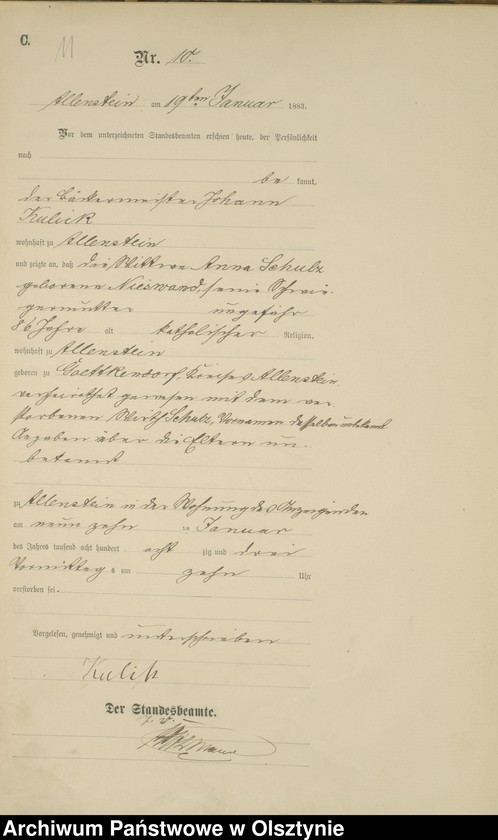 C.
11
Nr. 10.
Allenstein am 19ten Januar 1883.
Vor dem unterzeichneten Standesbeamten erschien heute, der Persönlichkeit
nach
be kannt,
der Bäckermeister Johann
Kulick
wohnhaft zu Allenstein
und zeigte an, daß die Wittwe Anna Schulz
geborene Nieswand, seine Schwie-
germutter ungefähr
86 Jahre alt katholischer Religion,
wohnhaft zu Allenstein
geboren zu Goettkendorf, Kreises Allenstein
verheirathet gewesen mit dem ver-
storbenen Wirth Schulz, Vornamen desselben unbekannt
Angaben über die Eltern un-
bekannt
zu Allenstein in der Wohnung des Anzeigenden
am neun zehn ten Januar
des Jahres tausend acht hundert acht zig und drei
Vormittags um zehn Uhr
verstorben sei.
Vorgelesen, genehmigt und unterschrieben
Kulik
Der Standesbeamte.
Archiwum Państwowe w Olsztynie